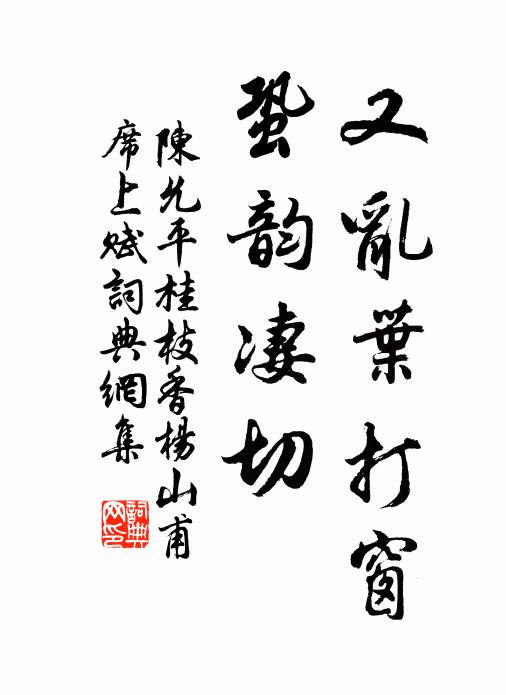 又亂葉打窗
蛩韵凄切
陳允平桂枝香楊山甫
席上賦詞典網集
詞典
网印